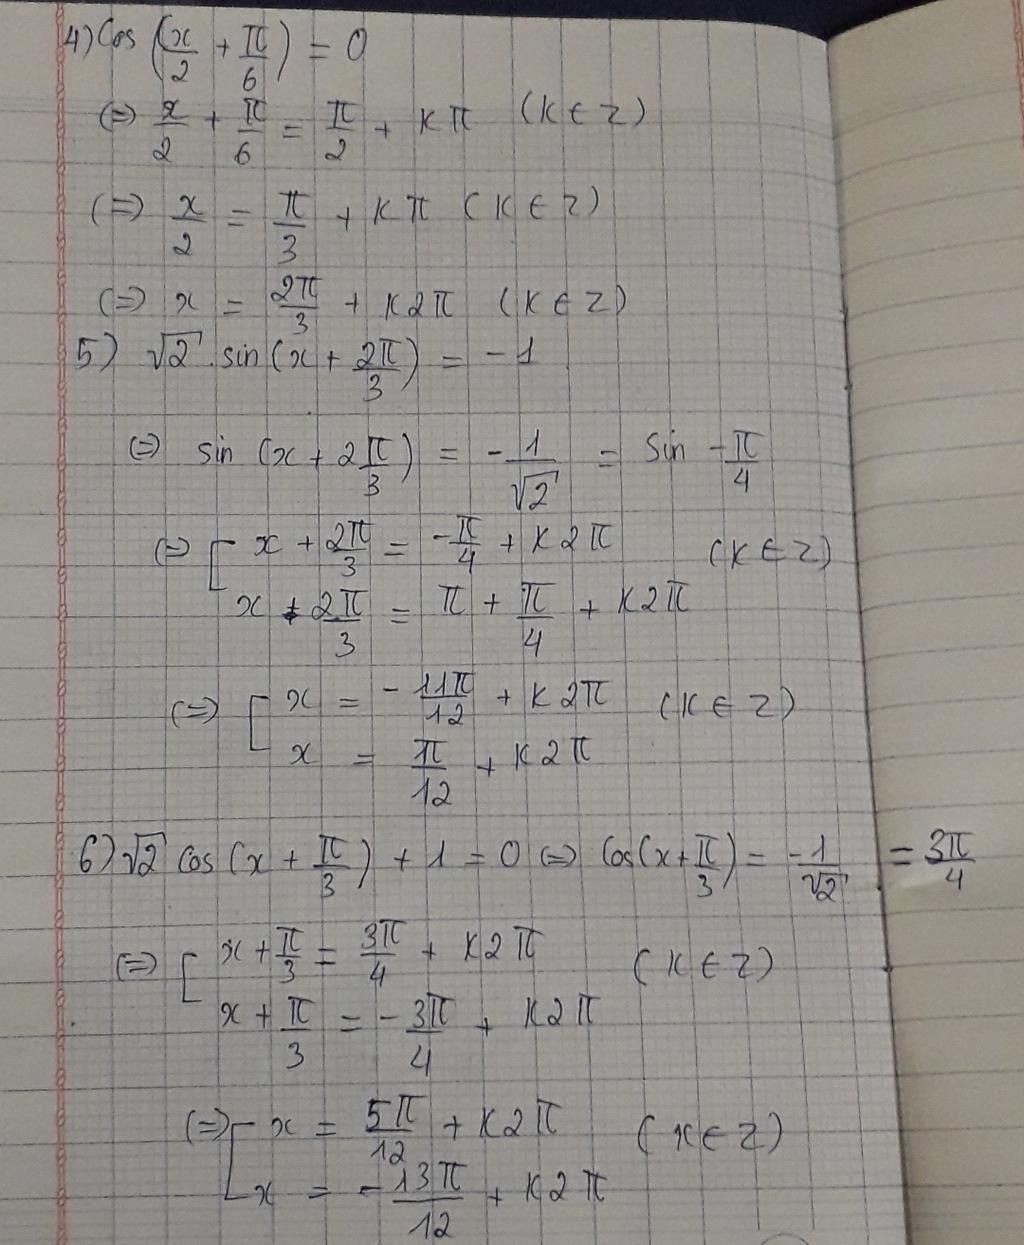 4) Cos (x/2 + π/6) = 0
(=) x/2 + π/6 = π/2 + Kπ (K ∈ Z)
(=) x/2 = π/3 + Kπ (K ∈ Z)
(=) x = 2π/3 + K2π (K ∈ Z)
5) √2 . sin (x + 2π/3) = -1
(=) sin (x + 2π/3) = -1/√2 = Sin -π/4
(=) [ x + 2π/3 = -π/4 + K2π (K ∈ Z)
x + 2π/3 = π + π/4 + K2π
(=) [ x = -11π/12 + K2π (K ∈ Z)
x = π/12 + K2π
6) √2 cos (x + π/3) + 1 = 0 (=) Cos(x + π/3) = -1/√2 = 3π/4
(=) [ x + π/3 = 3π/4 + K2π (K ∈ Z)
x + π/3 = -3π/4 + K2π
(=) [ x = 5π/12 + K2π (K ∈ Z)
x = -13π/12 + K2π